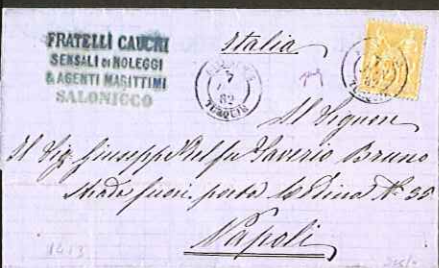 FRATELLI CAUCHI
SENSALI DI NOLEGGI
& AGENTI MARITTIMI
SALONICCO
Italia
7
82
TURQUIE
Al Signor
Al Sig. Giuseppe Saverio Bruno
Strada fuori porta Medina N° 35
Napoli